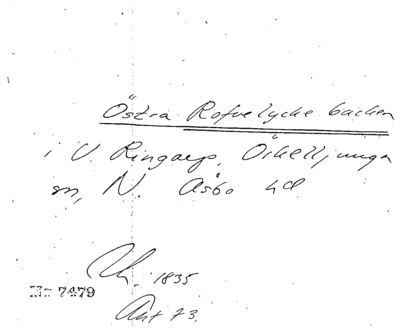 Östra Rofvelycke backen
i V. Ringarp, Örkelljunga
sn, N. Åsbo hd
1835
Nr 7479
Ant 73.